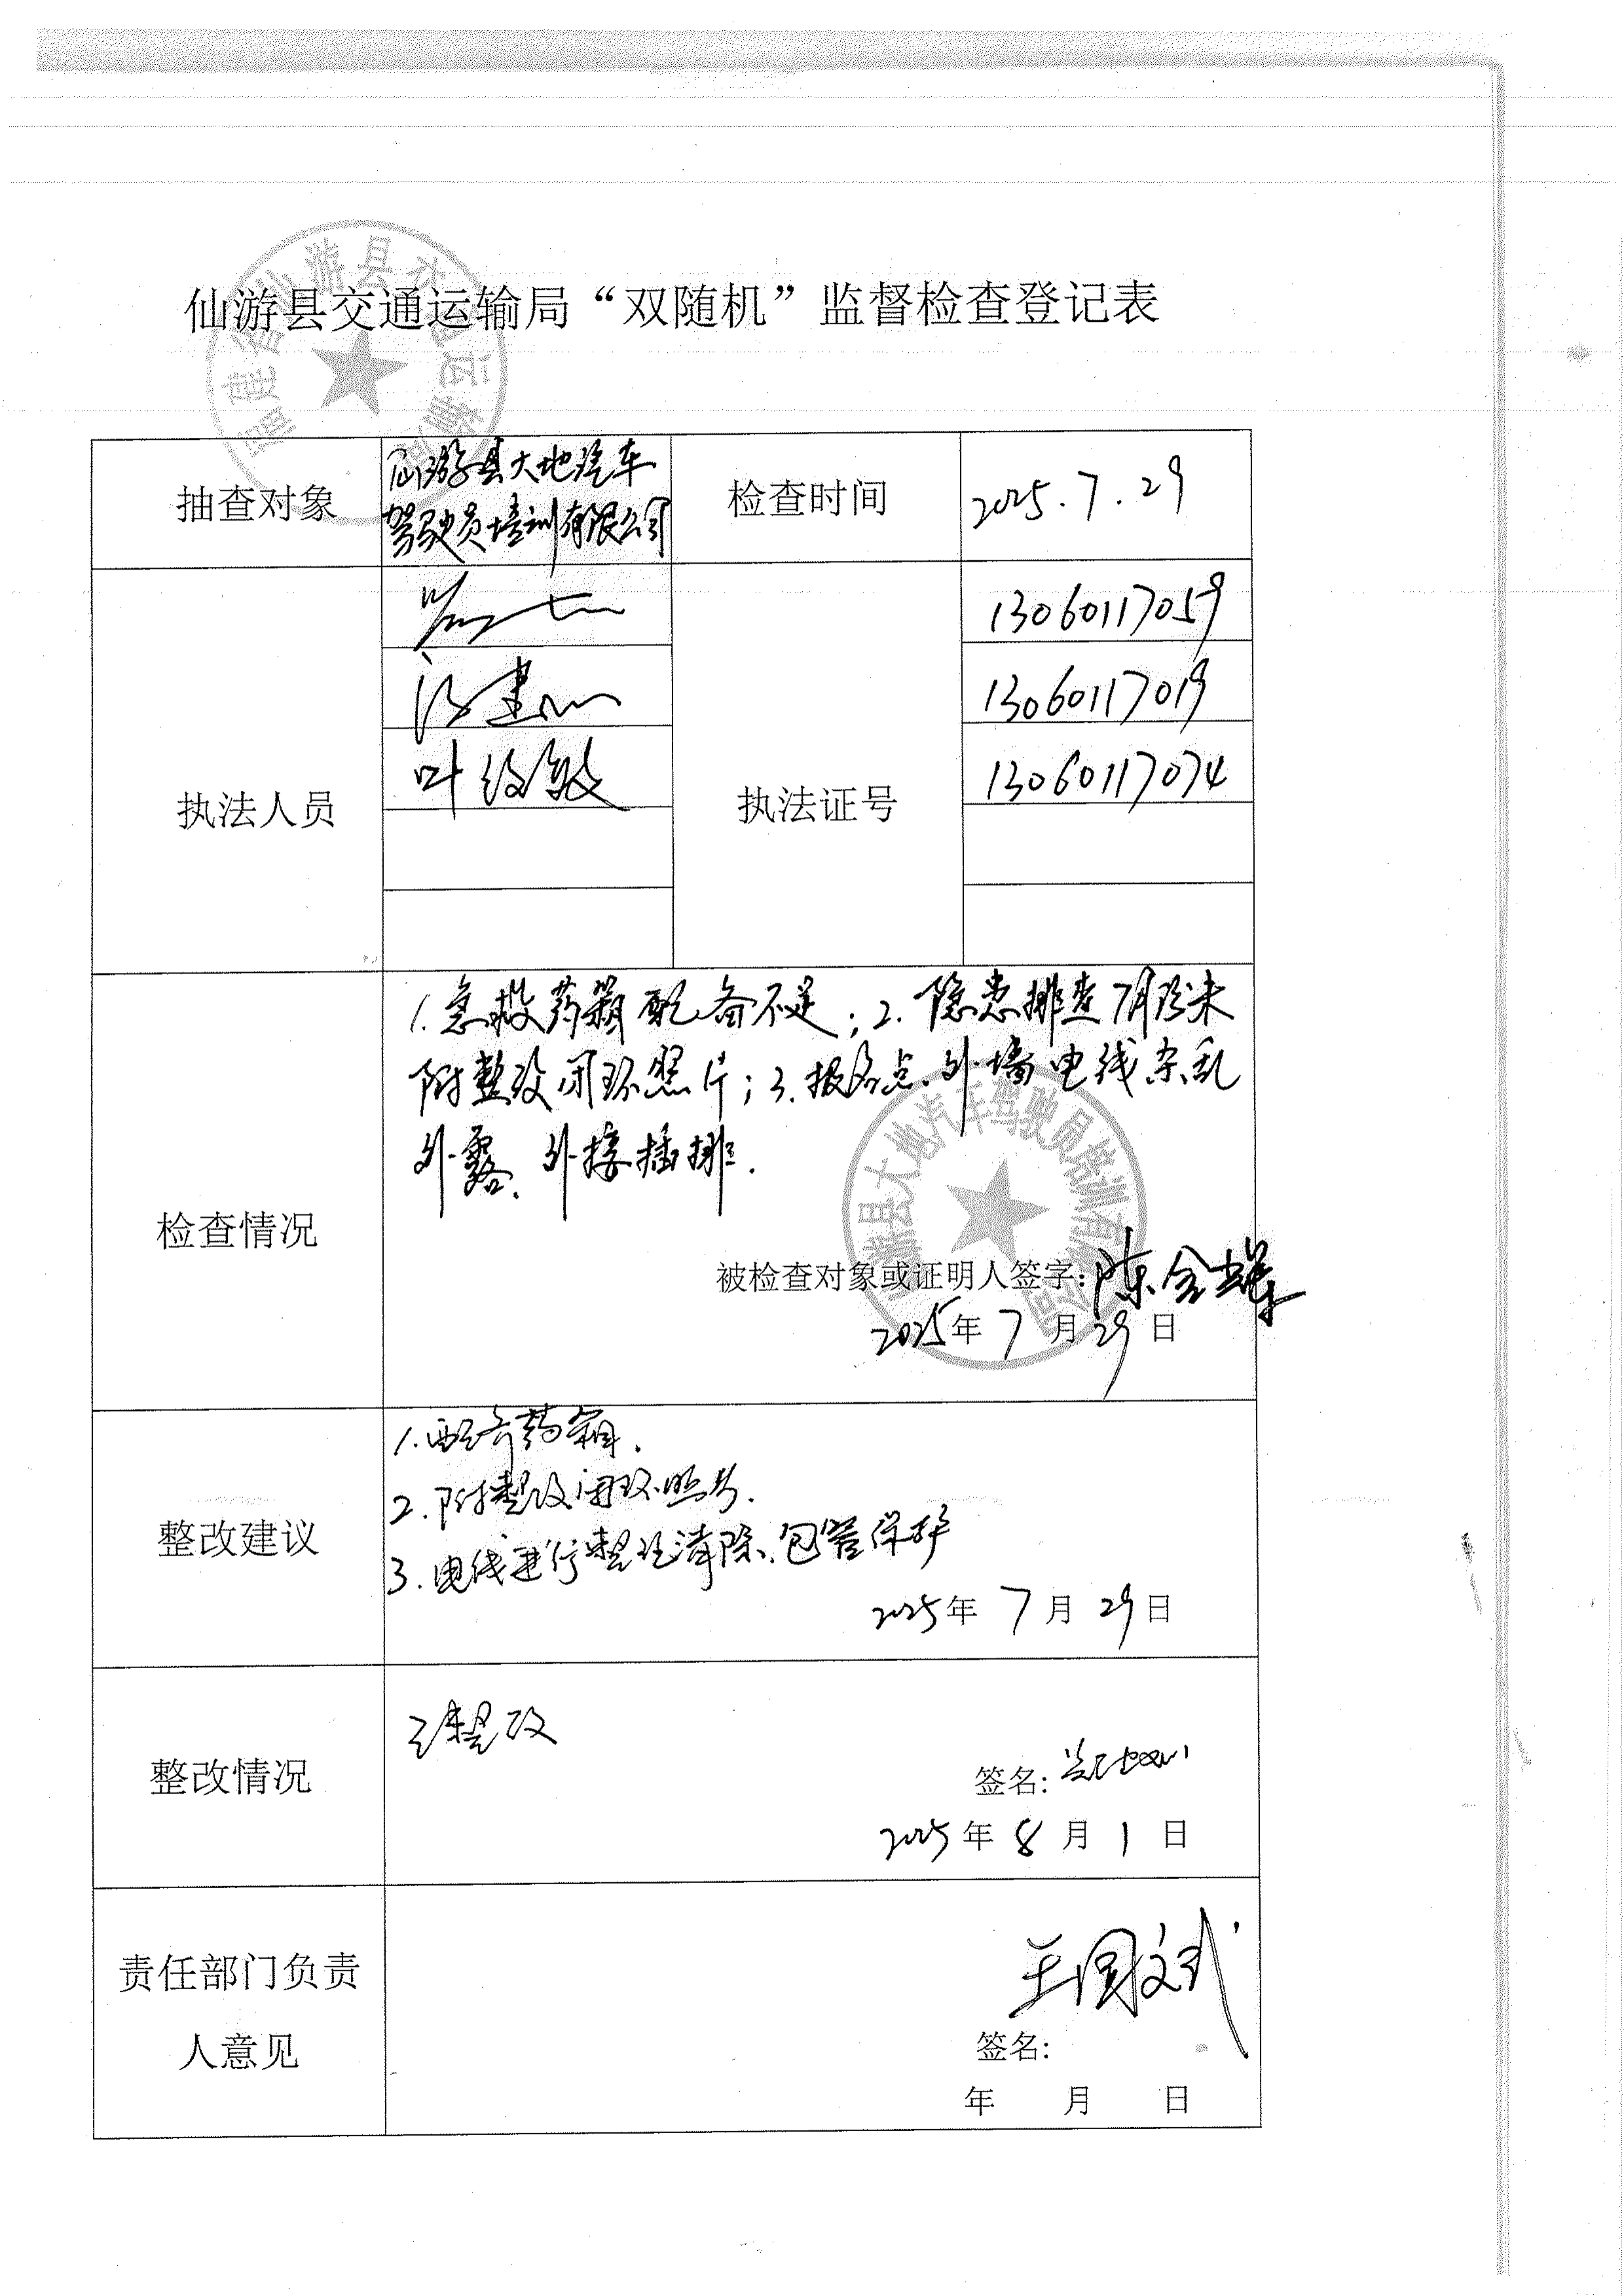 仙游县交通运输局“双随机”监督检查登记表
抽查对象
仙游县大地汽车
驾驶员培训有限公司
检查时间
2025.7.29
执法人员
执法证号
13060117059
13060117019
叶
13060117074
检查情况
1.急救药箱配备不足；2.隐患排查7月份未
附整改闭环照片；3.报名点、外墙电线杂乱
外露、外接插排.
仙游县大地汽车驾驶员培训有限公司
被检查对象或证明人签字：陈金
2025年7月29日
整改建议
1.配齐药箱.
2.附整改闭环照片.
3.电线进行整理清除、包管保护
2025年7月29日
整改情况
已整改
签名:
2025年8月1日
责任部门负责
人意见
王国斌
签名:
年 月 日